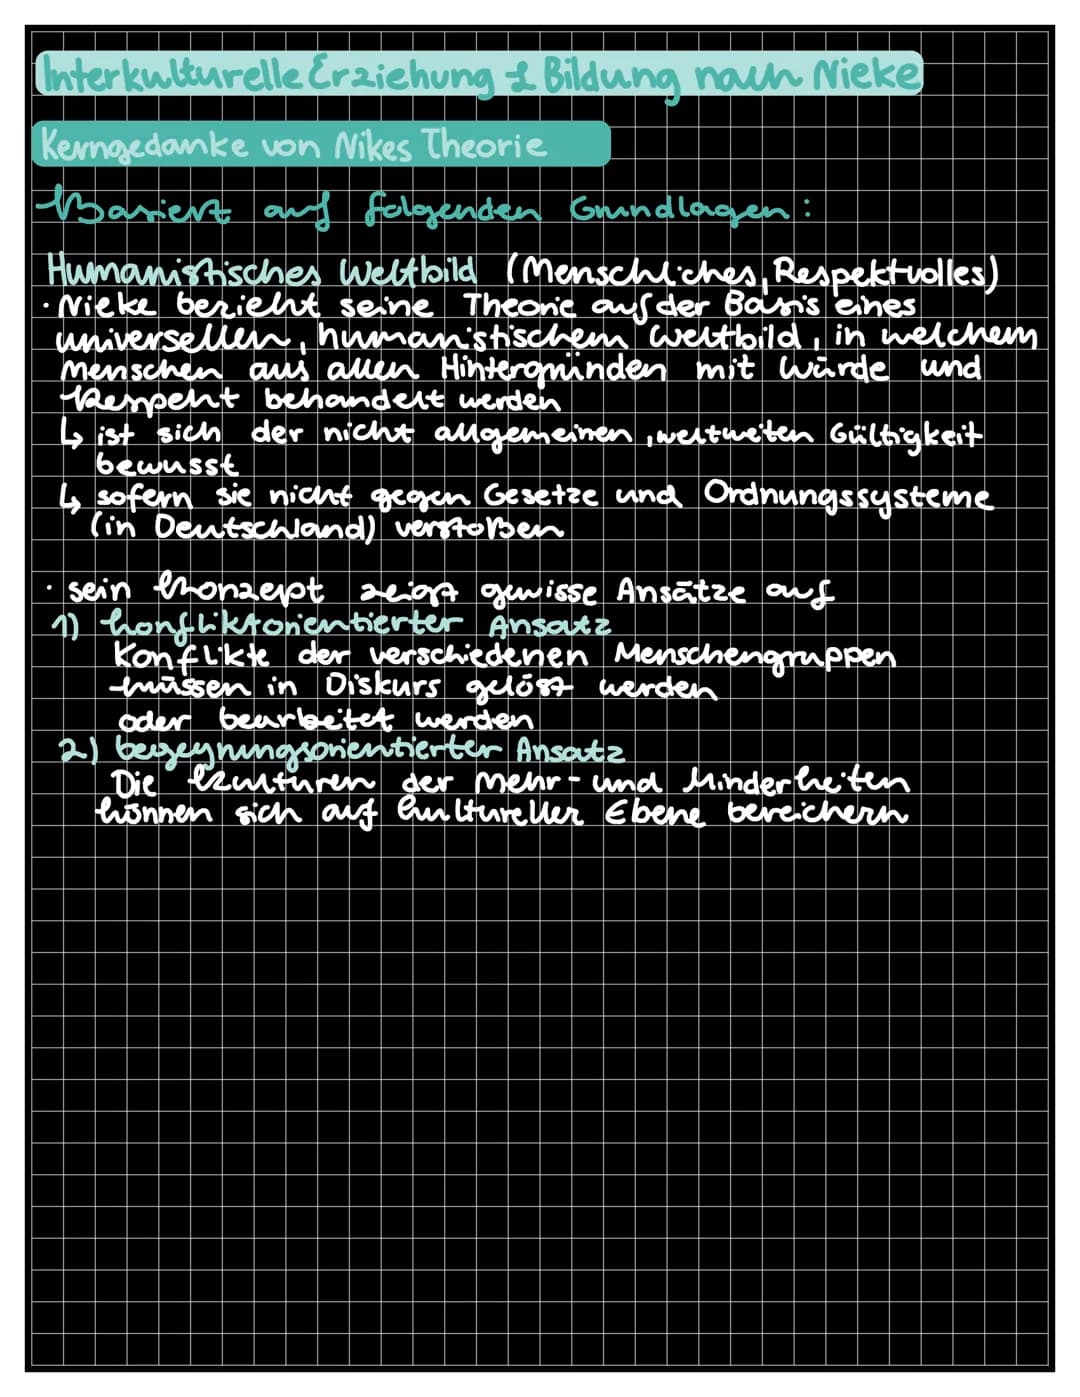 Interkulturelle Erziehung & Bildung nach Nieke
Kerngedanke von Nikes Theorie
Basiert auf folgenden Grundlagen:
Humanistisches Weltbild (Menschliches, Respektvolles)
· Nieke bezieht seine Theorie auf der Basis eines
universellen, humanistischem Weltbild, in welchem
Menschen aus allen Hintergründen mit Würde und
Respekt behandelt werden
↳ ist sich der nicht allgemeinen, weltweiten Gültigkeit
bewusst
↳ sofern sie nicht gegen Gesetze und Ordnungssysteme
(in Deutschland) verstoßen
· sein Konzept zeigt gewisse Ansätze auf
1) konfliktorientierter Ansatz
Konflikte der verschiedenen Menschengruppen
müssen in Diskurs gelöst werden
oder bearbeitet werden
2) begegnungsorientierter Ansatz
Die Kulturen der Mehr- und Minderheiten
können sich auf kultureller Ebene bereichern